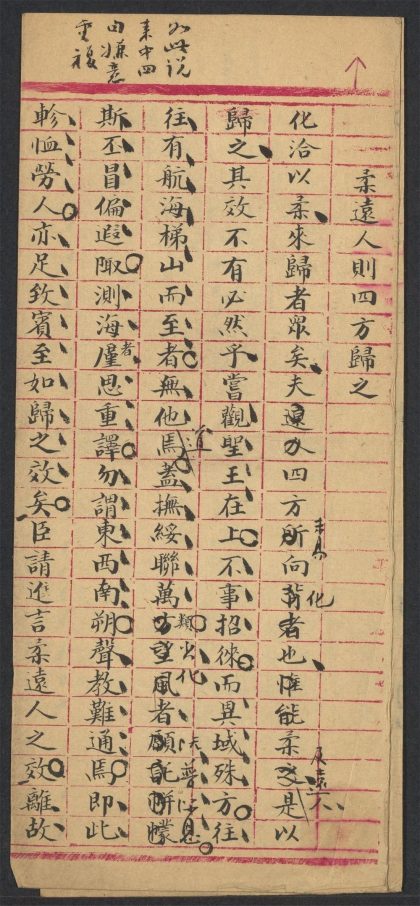 如此説
重複
柔遠人則四方歸之
化洽以柔來歸者眾矣夫遠人四方所向背者也惟能柔是以
化
歸之其效不有必然乎嘗觀聖王在上不事招徠而異域殊方往
往有航海梯山而至者無他焉蓋撫綏聯萬方望風者願託帡幪
道
類
化
普
斯丕冒偏遐陬測海者僅思重譯勿謂東西南朔聲教難通焉即此
軫恤勞人亦足致賓至如歸之效矣臣請進言柔遠人之效離故